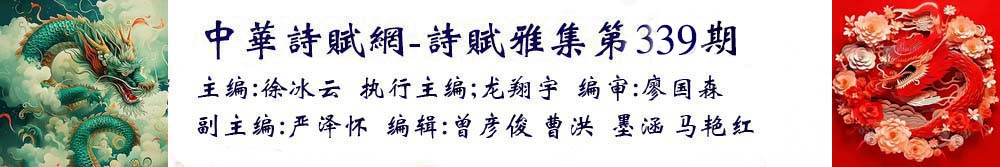 中華詩賦網-詩賦雅集第339期
主编:徐冰云 执行主编;龙翔宇 编审:廖国森
副主编:严泽怀 编辑:曾彦俊 曹洪 墨涵 马艳红